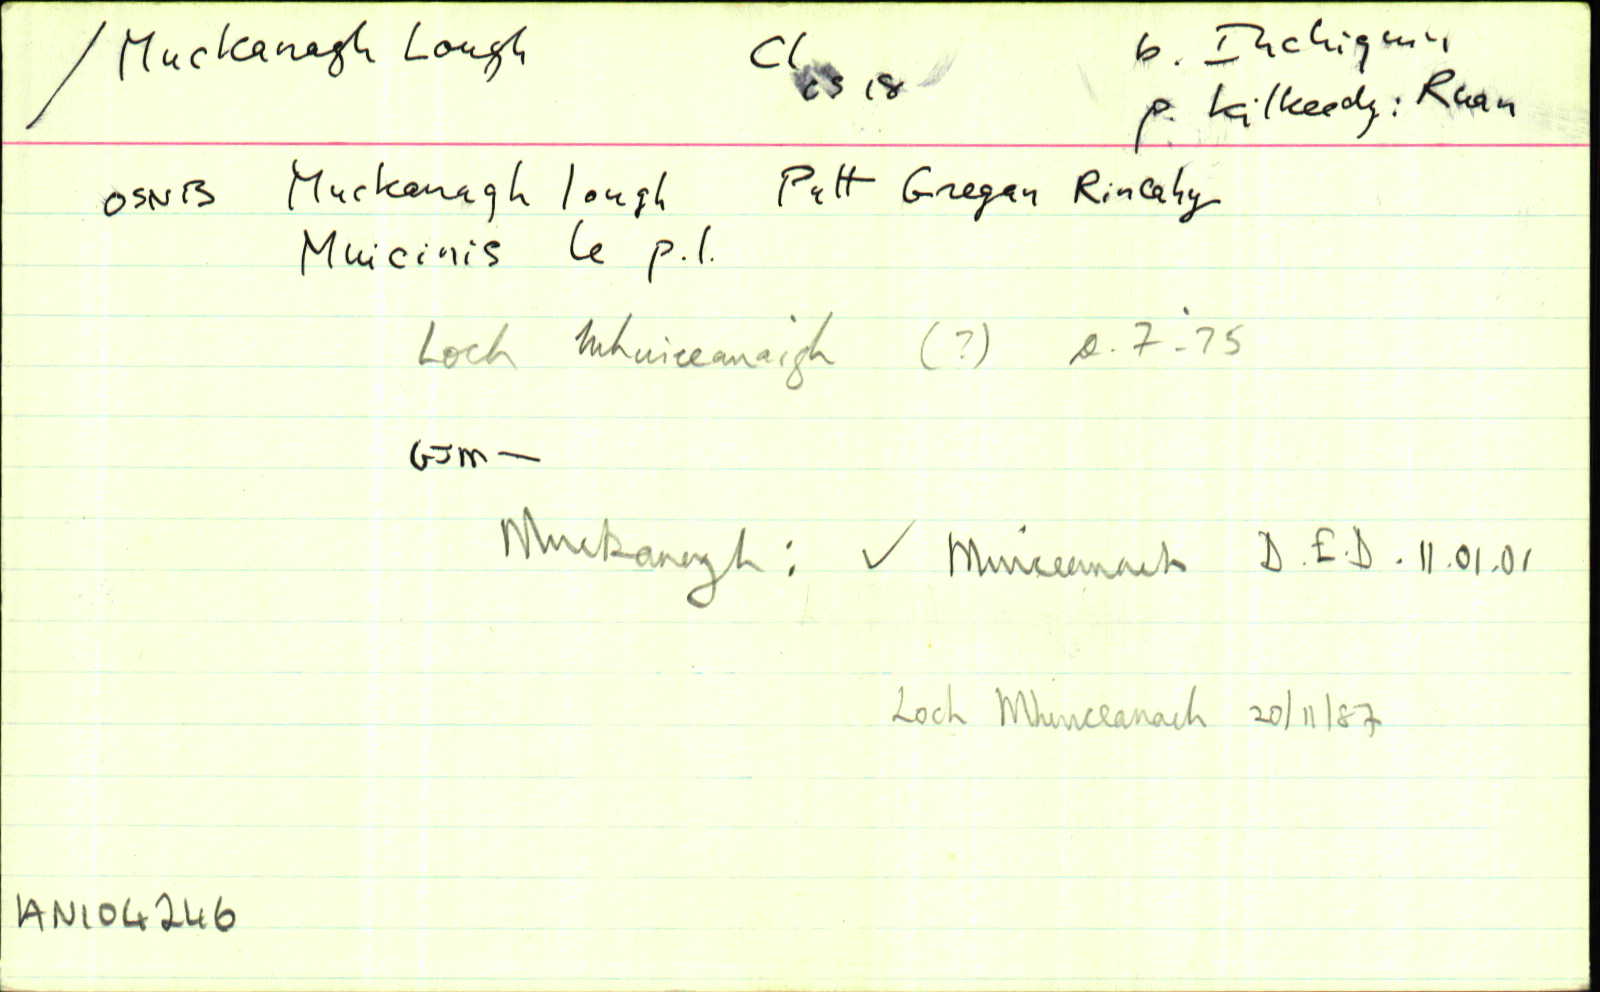 / Muckanagh Lough Cl b. Inchiquin
os 18 p. Kilkeedy: Ruan
OSNB Muckanagh lough Patt Gregan Rincahy
Muicinis le p.l.
Loch Mhuiceanaigh (?) 7.75
GJM —
Muckanagh: ✓ Muiceanach D.E.D. 11.01.01
Loch Mhuiceanach 20/11/87
AN104246